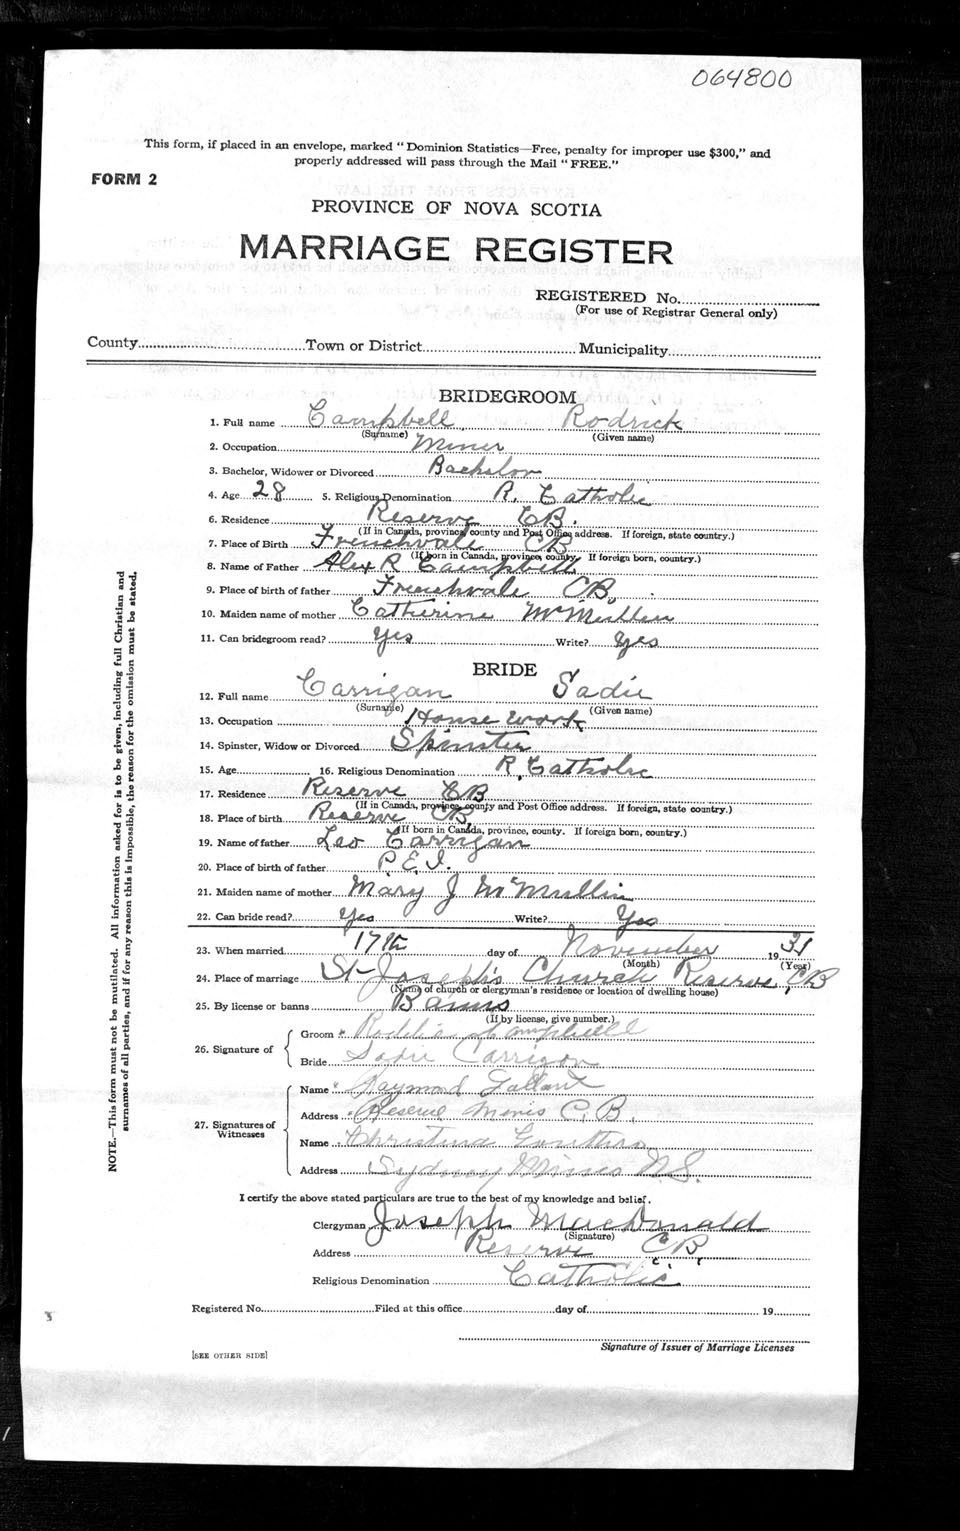 064800
This form, if placed in an envelope, marked "Dominion Statistics—Free, penalty for improper use $300," and
properly addressed will pass through the Mail "FREE."
FORM 2
PROVINCE OF NOVA SCOTIA
MARRIAGE REGISTER
REGISTERED No.
(For use of Registrar General only)
County Town or District Municipality
BRIDEGROOM
1. Full name Campbell Rodrick
(Surname) (Given name)
2. Occupation Miner
3. Bachelor, Widower or Divorced Bachelor
4. Age 28 5. Religious Denomination R. Catholic
6. Residence Reserve CB.
(If in Canada, province, county and Post Office address. If foreign, state country.)
7. Place of Birth Frenchvale CB
(If born in Canada, province, county. If foreign born, country.)
8. Name of Father Alex R Campbell
9. Place of birth of father Frenchvale CB,
10. Maiden name of mother Catherine McMullen
11. Can bridegroom read? Yes Write? Yes
BRIDE
12. Full name Carrigan Sadie
(Surname) (Given name)
13. Occupation House work
14. Spinster, Widow or Divorced Spinster
15. Age 16. Religious Denomination R. Catholic
17. Residence Reserve CB
(If in Canada, province, county and Post Office address. If foreign, state country.)
18. Place of birth Reserve CB,
(If born in Canada, province, county. If foreign born, country.)
19. Name of father Leo Carrigan
20. Place of birth of father P.E.I.
21. Maiden name of mother Mary J McMullin
22. Can bride read? Yes Write? Yes
23. When married 17th day of November 1931
(Month) (Year)
24. Place of marriage St-Joseph's Church Reserve, CB
(Name of church or clergyman's residence or location of dwelling house)
25. By license or banns Banns
(If by license, give number.)
26. Signature of Groom Campbell
Bride Sadie Carrigan
27. Signatures of Witnesses
Name Raymond Gallant
Address Reserve Mines C.B.
Name Christina
Address Sydney Mines N.S.
I certify the above stated particulars are true to the best of my knowledge and belief.
Clergyman Joseph MacDonald
(Signature)
Address Reserve CB
Religious Denomination Catholic
Registered No. Filed at this office day of 19
Signature of Issuer of Marriage Licenses
[SEE OTHER SIDE]
NOTE.—This form must not be mutilated. All information asked for is to be given, including full Christian and
surnames of all parties, and if for any reason this is impossible, the reason for the omission must be stated.